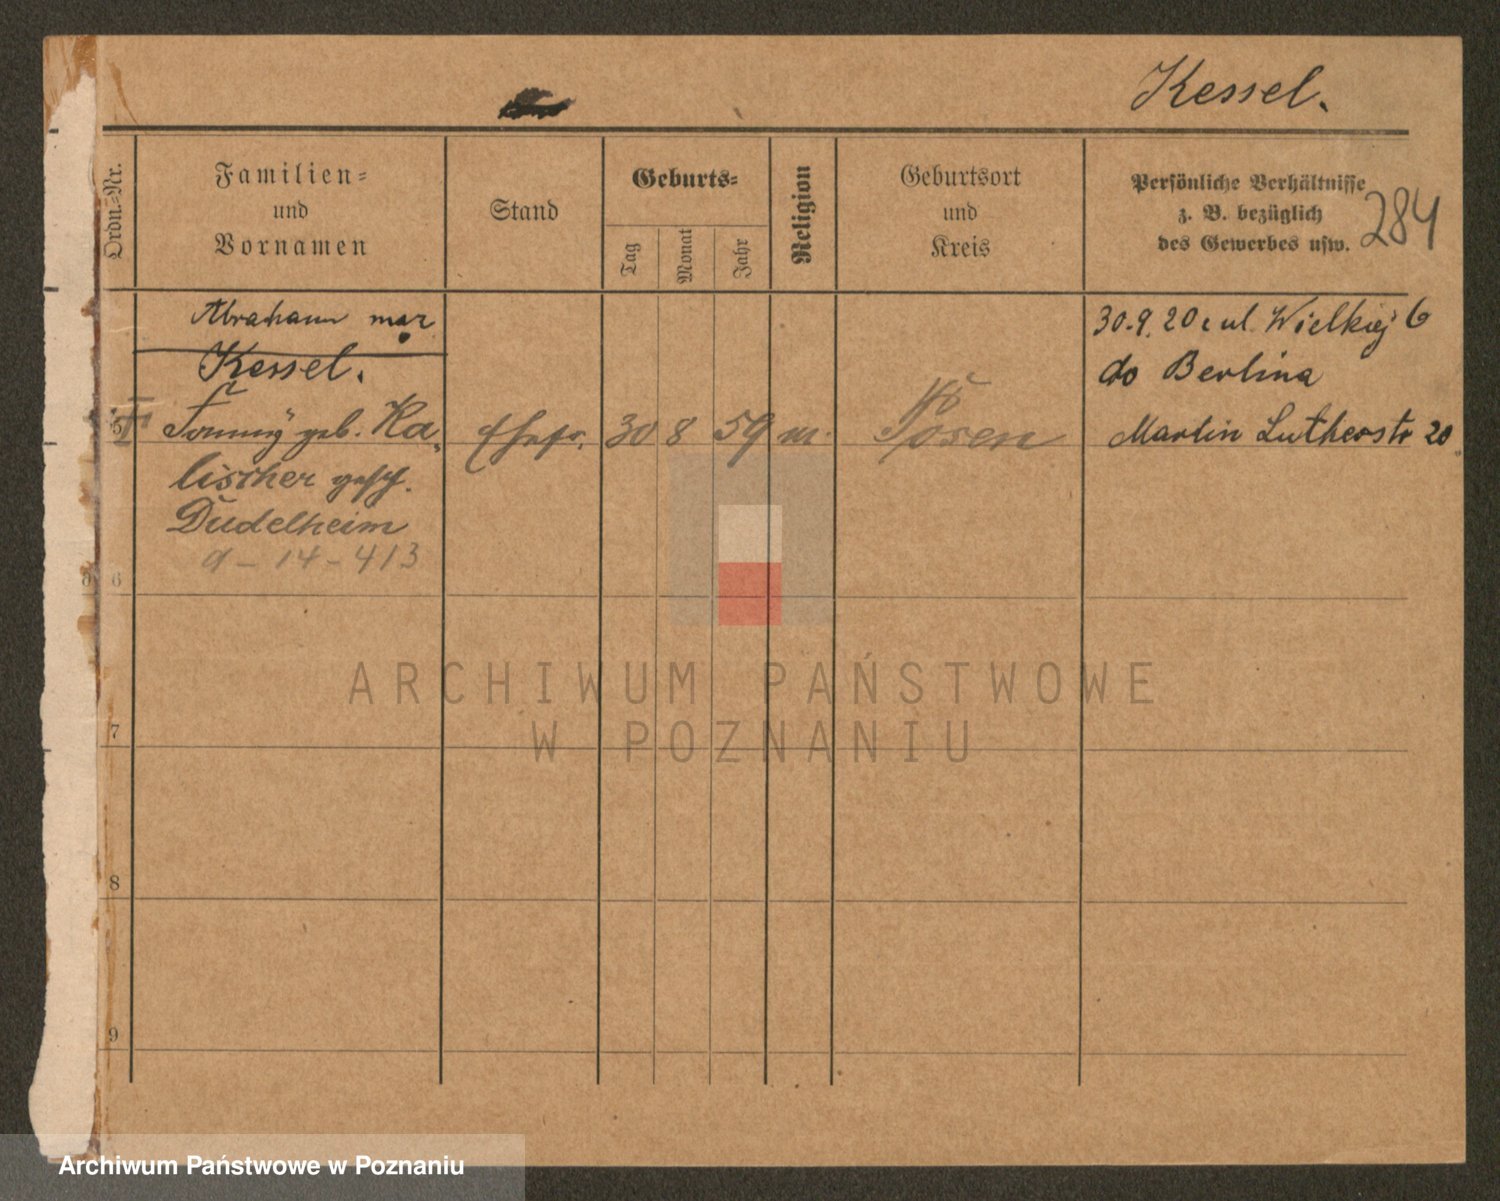 Kessel.
Ordn.-Nr.
Familien-
und
Vornamen
Stand
Geburts-
Tag
Monat
Jahr
Religion
Geburtsort
und
Kreis
Persönliche Verhältnisse
z. B. bezüglich
des Gewerbes usw.
284
Abraham
30.9.20 z ul. Wielkiej 6
Kessel.
do Berlina
5
geb. Ka
Ehefr. 30 8 59 m. Posen
Martin Lutherstr 20
lischer gesch.
Dudelheim
a - 14 - 413
6
7
8
9
ARCHIWUM PAŃSTWOWE
W POZNANIU
Archiwum Państwowe w Poznaniu